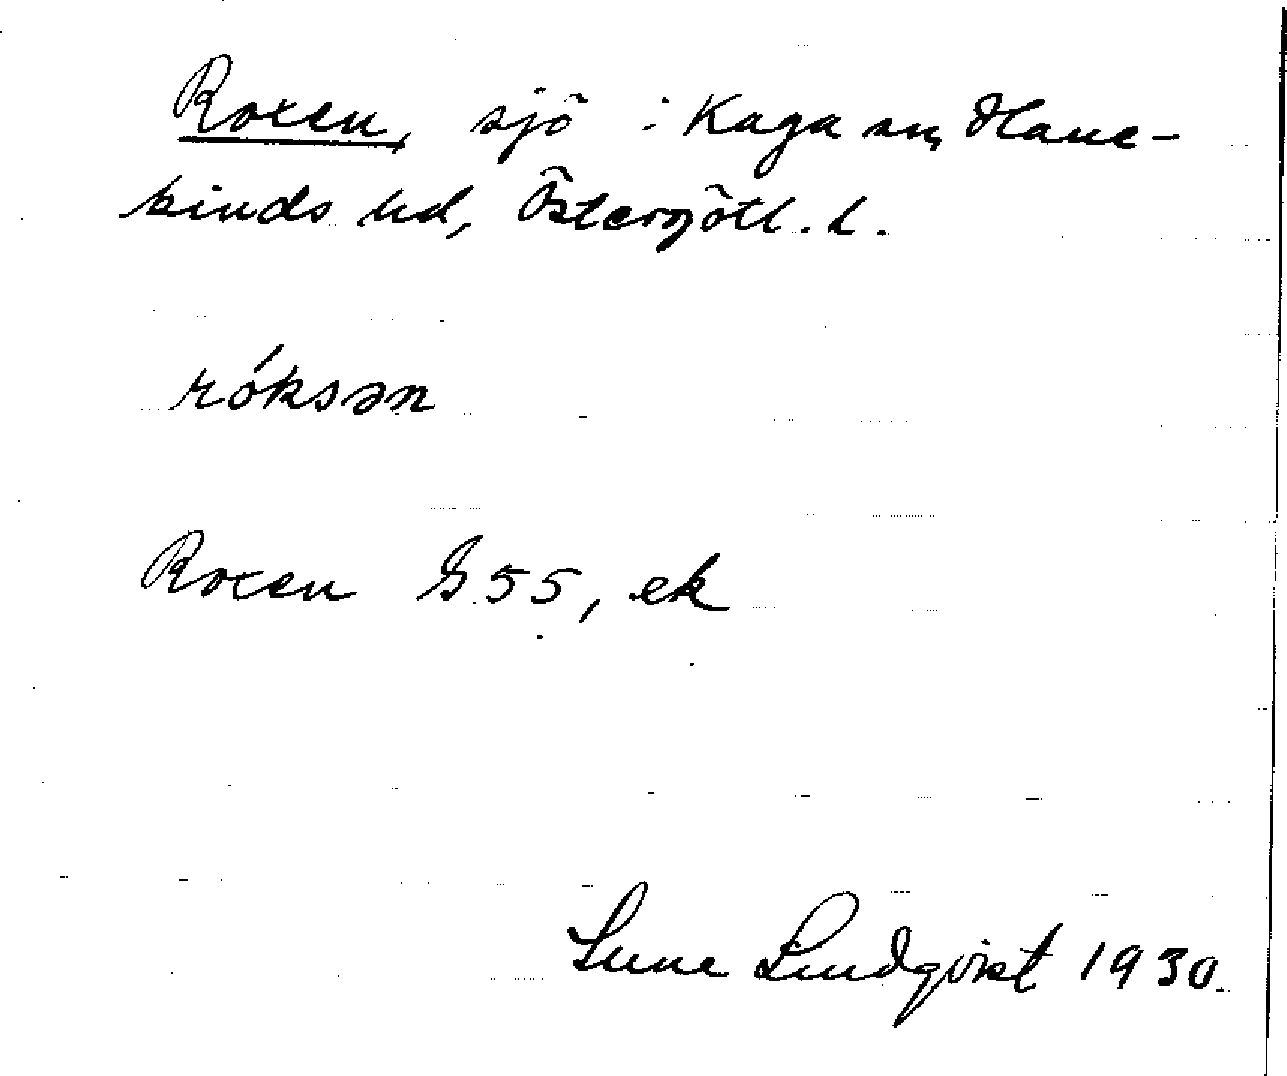 Roxen, sjö i Kaga sn, Hane-
kinds hd, Östergötl. l.
róksən
Roxen G. 55, ek
Sune Lindqvist 1930.